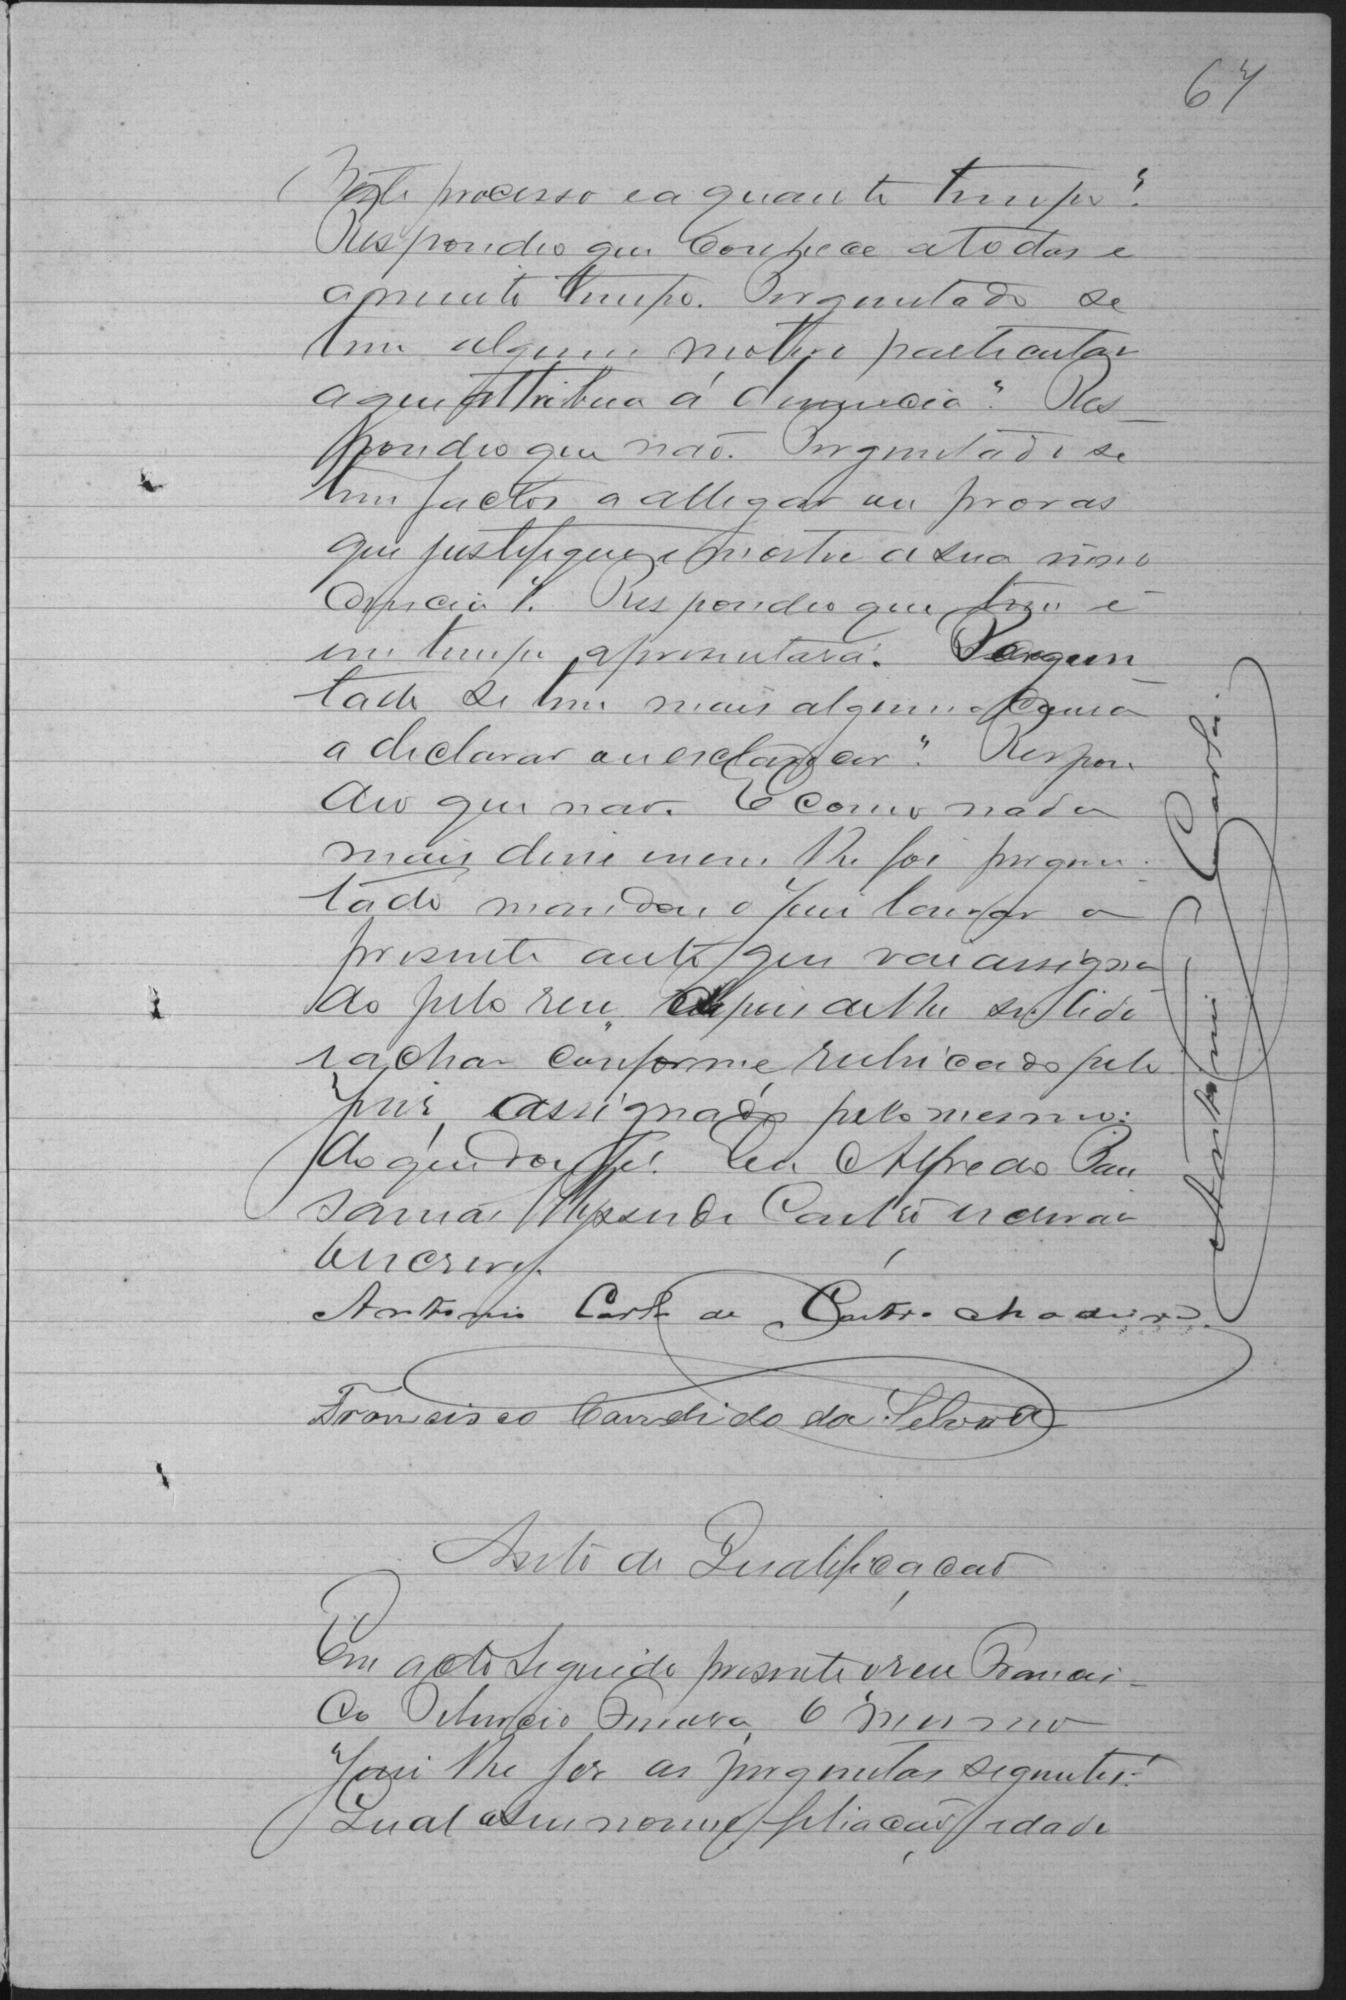 67
Neste processo e a quanto tempo?
Respondeo que conhece a todos e
a muito tempo. Perguntado se
tem algum motivo particular
a que attribua á denuncia? Res-
pondeo que não. Perguntado se
tem factos a allegar ou provas
que justifique e mostre a sua inno
cencia? Respondeo que tem e
em tempo apresentará. Pergun
tado se tem mais alguma cousa
a declarar ou esclarecer? Respon
deo que não. E como nada
mais disse nem lhe foi pergun-
tado mandou o Juiz lavrar o
presente auto que vai assigna
do pelo reu, depois de lhe ser lido
e achar conforme, rubricado pelo
Juiz, e assignado pelo mesmo:
do que dou fé. Eu Alfredo Pau
de Castro escrivão
o escrevy.
Antonio Carlos de Castro Madeira.
Francisco Candido da Silva
Antonio Carlos
Auto de Qualificação
Em acto seguido presente o reu Francis-
co o mesmo
Juiz lhe fez as perguntas seguintes:
Qual o seu nome, filiação, idade